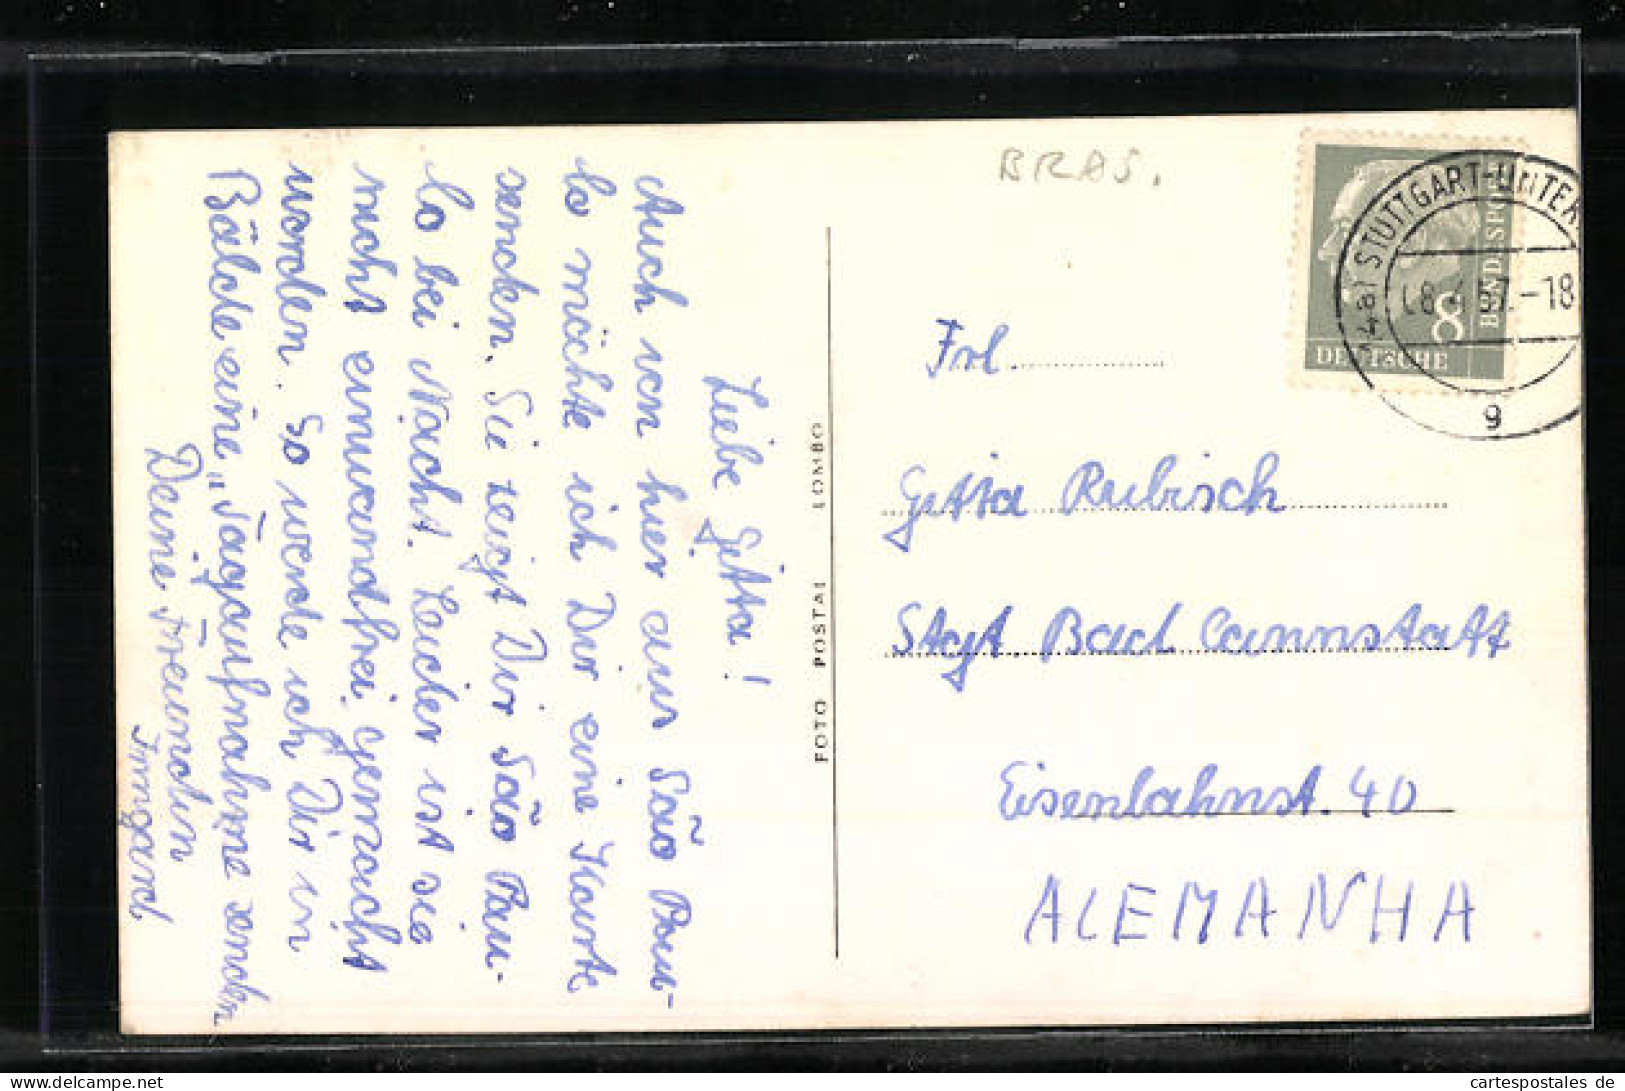 BRAS.
Liebe Gitta!
Auch von hier aus São Pau-
lo möchte ich Dir eine Karte
senden. Sie zeigt Dir São Pau-
lo bei Nacht. Leider ist sie
nicht einwandfrei gemacht
worden. So werde ich Dir in
Bälde eine „Tagaufnahme senden
Deine Freundin
Irmgard
FOTO POSTAL LOMBO
DEUTSCHE
BUNDESPOST
8
STUTTGART-UNTER
-18
g
Frl.
Gitta Rubisch
Stgt. Bad Cannstatt
Eisenbahnst. 40
ALEMANHA
cartespostales de